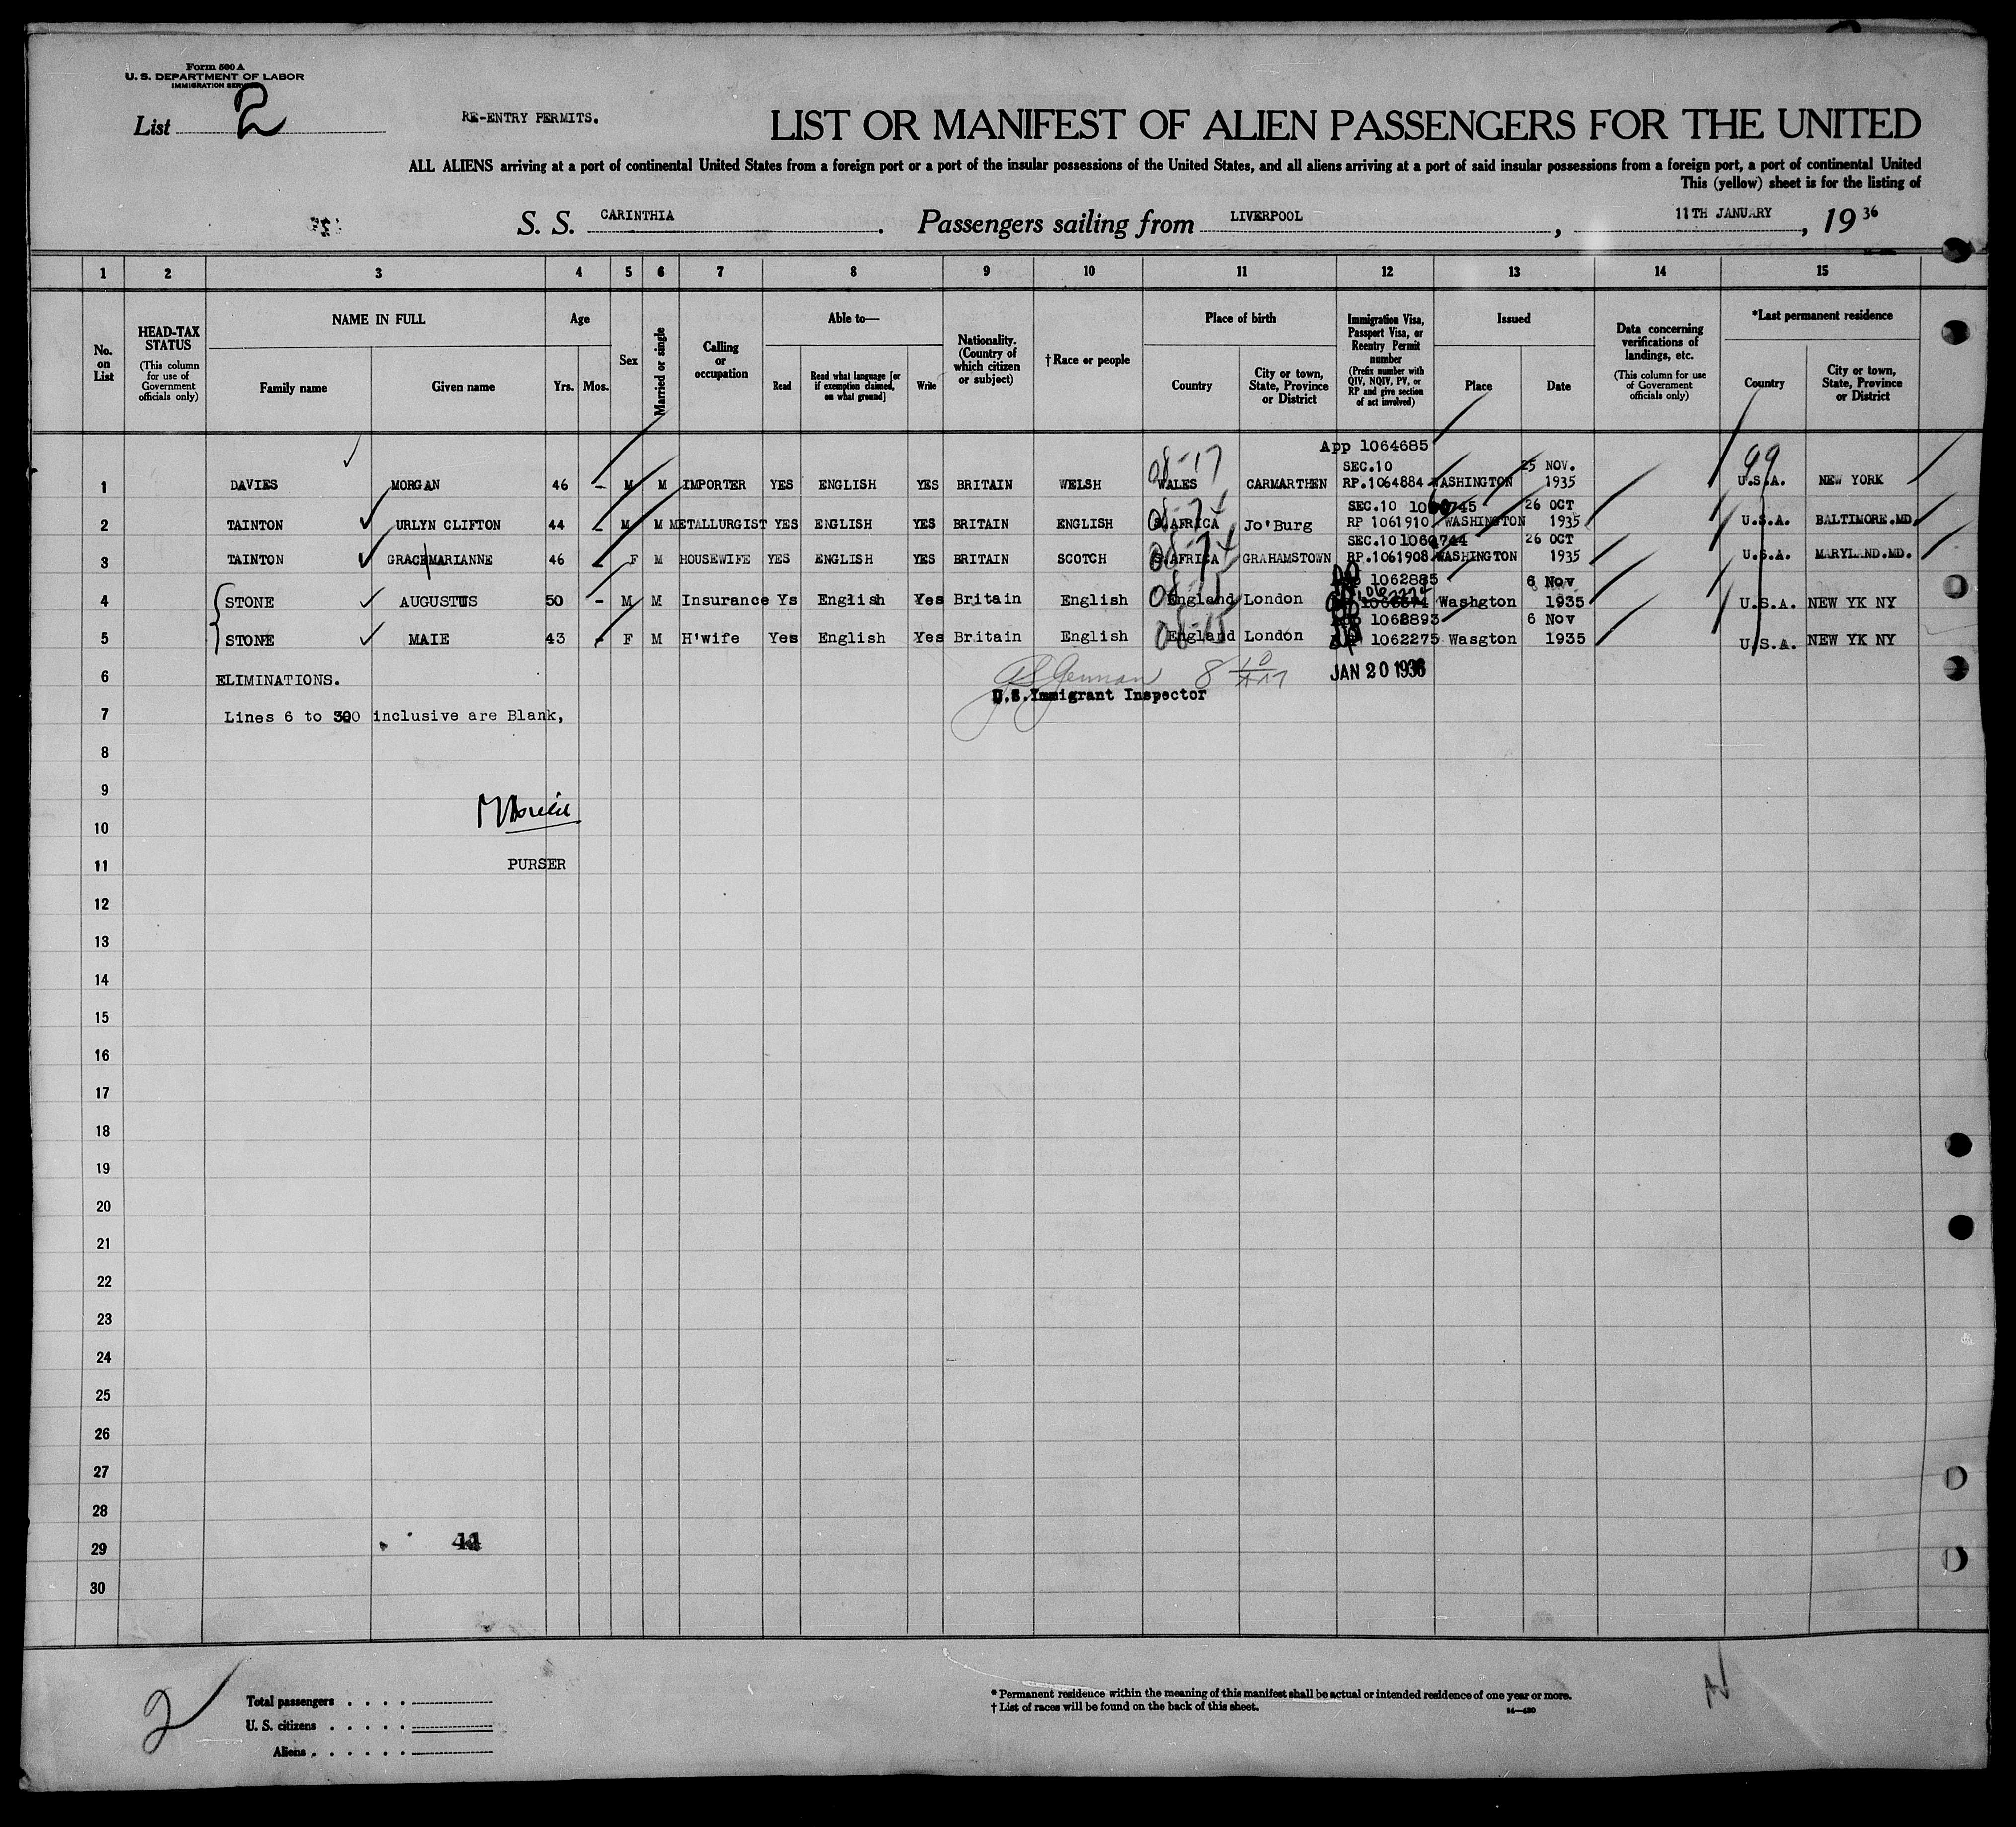 Form 500 A
U. S. DEPARTMENT OF LABOR
IMMIGRATION SERVICE
List 2
RE-ENTRY PERMITS.
LIST OR MANIFEST OF ALIEN PASSENGERS FOR THE UNITED
ALL ALIENS arriving at a port of continental United States from a foreign port or a port of the insular possessions of the United States, and all aliens arriving at a port of said insular possessions from a foreign port, a port of continental United
This (yellow) sheet is for the listing of
S. S. CARINTHIA. Passengers sailing from LIVERPOOL, 11TH JANUARY, 19 36
1 2 3 4 5 6 7 8 9 10 11 12 13 14 15
No. on List
HEAD-TAX STATUS
(This column for use of Government officials only)
NAME IN FULL
Family name Given name
Age
Yrs. Mos.
Sex
Married or single
Calling or occupation
Able to—
Read Read what language [or if exemption claimed, on what ground] Write
Nationality. (Country of which citizen or subject)
†Race or people
Place of birth
Country City or town, State, Province or District
Immigration Visa, Passport Visa, or Reentry Permit number
(Prefix number with QIV, NQIV, PV, or RP and give section of act involved)
Issued
Place Date
Data concerning verifications of landings, etc.
(This column for use of Government officials only)
*Last permanent residence
Country City or town, State, Province or District
App 1064685
08-17 SEC.10 25 NOV. 99
1 DAVIES MORGAN 46 - M M IMPORTER YES ENGLISH YES BRITAIN WELSH WALES CARMARTHEN RP.1064884 WASHINGTON 1935 U.S.A. NEW YORK
SEC.10 26 OCT
2 TAINTON URLYN CLIFTON 44 - M M METALLURGIST YES ENGLISH YES BRITAIN ENGLISH S.AFRICA Jo'Burg RP 1061910 WASHINGTON 1935 U.S.A. BALTIMORE.MD
SEC.10 1060744 26 OCT
3 TAINTON GRACE MARIANNE 46 - F M HOUSEWIFE YES ENGLISH YES BRITAIN SCOTCH S.AFRICA GRAHAMSTOWN RP.1061908 WASHINGTON 1935 U.S.A. MARYLAND.MD.
1062885 6 Nov
4 STONE AUGUSTUS 50 - M M Insurance Ys English Yes Britain English England London Washgton 1935 U.S.A. NEW YK NY
1062893 6 Nov
5 STONE MAIE 43 - F M H'wife Yes English Yes Britain English England London 1062275 Wasgton 1935 U.S.A. NEW YK NY
6 ELIMINATIONS. JAN 20 1936
U.S.Immigrant Inspector
7 Lines 6 to 30 inclusive are Blank,
8
9
10
11 PURSER
12
13
14
15
16
17
18
19
20
21
22
23
24
25
26
27
28
29
30
2
Total passengers
U. S. citizens
Aliens
* Permanent residence within the meaning of this manifest shall be actual or intended residence of one year or more.
† List of races will be found on the back of this sheet.
14—480